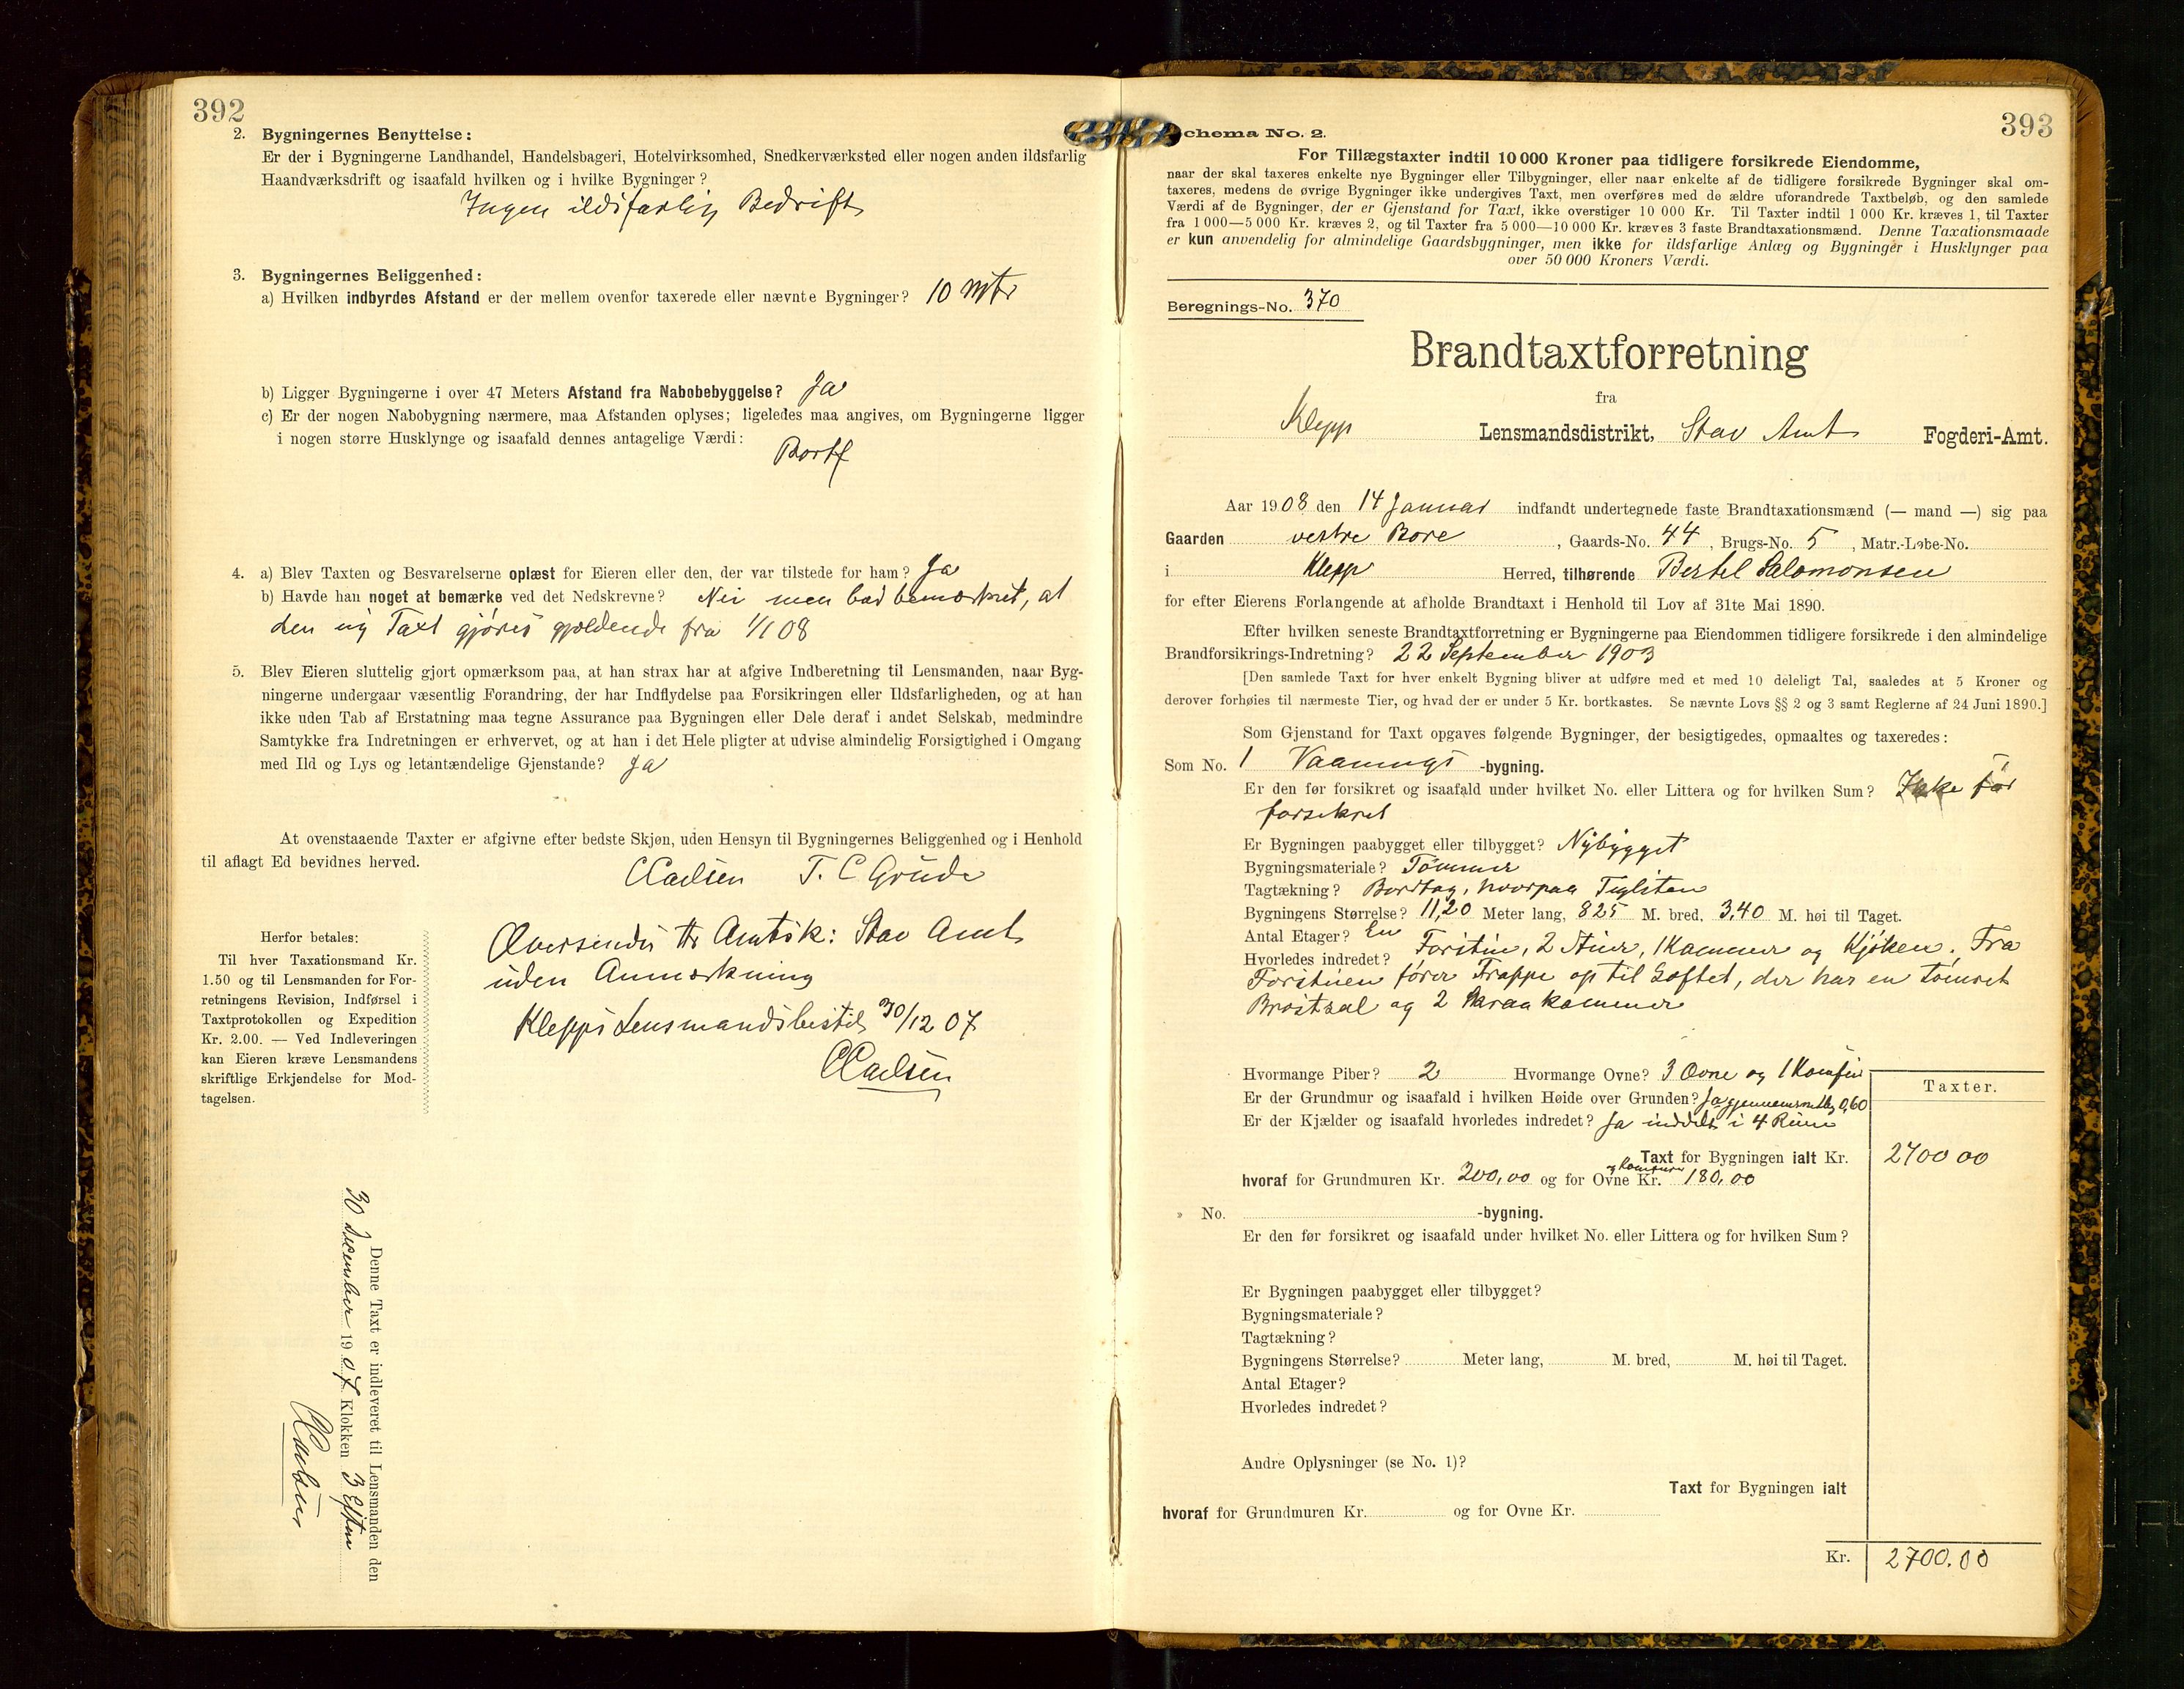 392
2. Bygningernes Benyttelse:
Er der i Bygningerne Landhandel, Handelsbageri, Hotelvirksomhed, Snedkerværksted eller nogen anden ildsfarlig
Haandværksdrift og isaafald hvilken og i hvilke Bygninger?
Ingen ildsfarlig Bedrift
3. Bygningernes Beliggenhed:
a) Hvilken indbyrdes Afstand er der mellem ovenfor taxerede eller nævnte Bygninger? 10 mtr
b) Ligger Bygningerne i over 47 Meters Afstand fra Nabobebyggelse? Ja
c) Er der nogen Nabobygning nærmere, maa Afstanden oplyses; ligeledes maa angives, om Bygningerne ligger
i nogen større Husklynge og isaafald dennes antagelige Værdi:
Bortf
4. a) Blev Taxten og Besvarelserne oplæst for Eieren eller den, der var tilstede for ham? Ja
b) Havde han noget at bemærke ved det Nedskrevne? Nei men bad bemærket, at
den ny Taxt gjøres gjældende fra 1/1 08
5. Blev Eieren sluttelig gjort opmærksom paa, at han strax har at afgive Indberetning til Lensmanden, naar Byg-
ningerne undergaar væsentlig Forandring, der har Indflydelse paa Forsikringen eller Ildsfarligheden, og at han
ikke uden Tab af Erstatning maa tegne Assurance paa Bygningen eller Dele deraf i andet Selskab, medmindre
Samtykke fra Indretningen er erhvervet, og at han i det Hele pligter at udvise almindelig Forsigtighed i Omgang
med Ild og Lys og letantændelige Gjenstande? Ja
At ovenstaaende Taxter er afgivne efter bedste Skjøn, uden Hensyn til Bygningernes Beliggenhed og i Henhold
til aflagt Ed bevidnes herved.
CCarlsen T. C Grude
Herfor betales:
Til hver Taxationsmand Kr.
1.50 og til Lensmanden for For-
retningens Revision, Indførsel i
Taxtprotokollen og Expedition
Kr. 2.00. — Ved Indleveringen
kan Eieren kræve Lensmandens
skriftlige Erkjendelse for Mod-
tagelsen.
Oversendes Hr Amtsk: Stav Amt
uden Anmærkning
Klepps Lensmandsbestil 30/12 07
CCarlsen
Denne Taxt er indleveret til Lensmanden den
30 December 1907 Klokken 3 Eftm
CCarlsen
393
chema No. 2.
For Tillægstaxter indtil 10 000 Kroner paa tidligere forsikrede Eiendomme,
naar der skal taxeres enkelte nye Bygninger eller Tilbygninger, eller naar enkelte af de tidligere forsikrede Bygninger skal om-
taxeres, medens de øvrige Bygninger ikke undergives Taxt, men overføres med de ældre uforandrede Taxtbeløb, og den samlede
Værdi af de Bygninger, der er Gjenstand for Taxt, ikke overstiger 10 000 Kr. Til Taxter indtil 1 000 Kr. kræves 1, til Taxter
fra 1 000—5 000 Kr. kræves 2, og til Taxter fra 5 000—10 000 Kr. kræves 3 faste Brandtaxationsmænd. Denne Taxationsmaade
er kun anvendelig for almindelige Gaardsbygninger, men ikke for ildsfarlige Anlæg og Bygninger i Husklynger paa
over 50 000 Kroners Værdi.
Beregnings-No. 370
Brandtaxtforretning
fra
Klepp Lensmandsdistrikt, Stav Amt Fogderi-Amt.
Aar 1908 den 14 Januar indfandt undertegnede faste Brandtaxationsmænd (— mand —) sig paa
Gaarden vestre Bore, Gaards-No. 44, Brugs-No. 5, Matr.-Løbe-No.
i Klepp Herred, tilhørende Bertel Salomonsen
for efter Eierens Forlangende at afholde Brandtaxt i Henhold til Lov af 31te Mai 1890.
Efter hvilken seneste Brandtaxtforretning er Bygningerne paa Eiendommen tidligere forsikrede i den almindelige
Brandforsikrings-Indretning? 22 September 1903
[Den samlede Taxt for hver enkelt Bygning bliver at udføre med et med 10 deleligt Tal, saaledes at 5 Kroner og
derover forhøies til nærmeste Tier, og hvad der er under 5 Kr. bortkastes. Se nævnte Lovs §§ 2 og 3 samt Reglerne af 24 Juni 1890.]
Som Gjenstand for Taxt opgaves følgende Bygninger, der besigtigedes, opmaaltes og taxeredes:
Som No. 1 Vaanings -bygning.
Er den før forsikret og isaafald under hvilket No. eller Littera og for hvilken Sum? Ikke før
forsikret
Er Bygningen paabygget eller tilbygget? Nybygget
Bygningsmateriale? Tømmer
Tagtækning? Bordtag, hvorpaa Teglsten
Bygningens Størrelse? 11,20 Meter lang, 825 M. bred, 3,40 M. høi til Taget.
Antal Etager? En
Hvorledes indredet? Forstue, 2 Stuer, 1 Kammer og Kjøken. Fra
Forstuen fører Trappe op til Loftet, der har en tømret
Brøstsal og 2 Skraakammer
Hvormange Piber? 2 Hvormange Ovne? 3 Ovne og 1 Komfur
Er der Grundmur og isaafald i hvilken Høide over Grunden? Ja gjennemsnitlig 0,60
Er der Kjælder og isaafald hvorledes indredet? Ja inddelt i 4 Rum
Taxter.
Taxt for Bygningen ialt Kr. 2700 00
hvoraf for Grundmuren Kr. 200,00 og for Ovne og Komfure Kr. 180,00
» No. -bygning.
Er den før forsikret og isaafald under hvilket No. eller Littera og for hvilken Sum?
Er Bygningen paabygget eller tilbygget?
Bygningsmateriale?
Tagtækning?
Bygningens Størrelse? Meter lang, M. bred, M. høi til Taget.
Antal Etager?
Hvorledes indredet?
Andre Oplysninger (se No. 1)?
Taxt for Bygningen ialt
hvoraf for Grundmuren Kr. og for Ovne Kr.
Kr. 2700.00